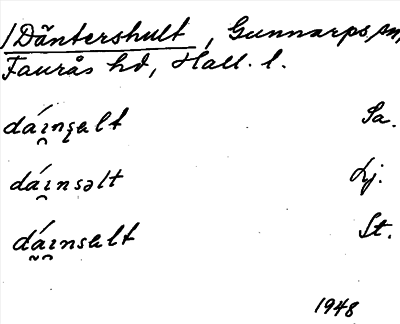 /Däntershult, Gunnarps sn,
Faurås hd, Hall. l.
dáı̯nsɐlt Sa.
dáı̯nsəlt Lj.
dáı̯nsɐlt St.
1948